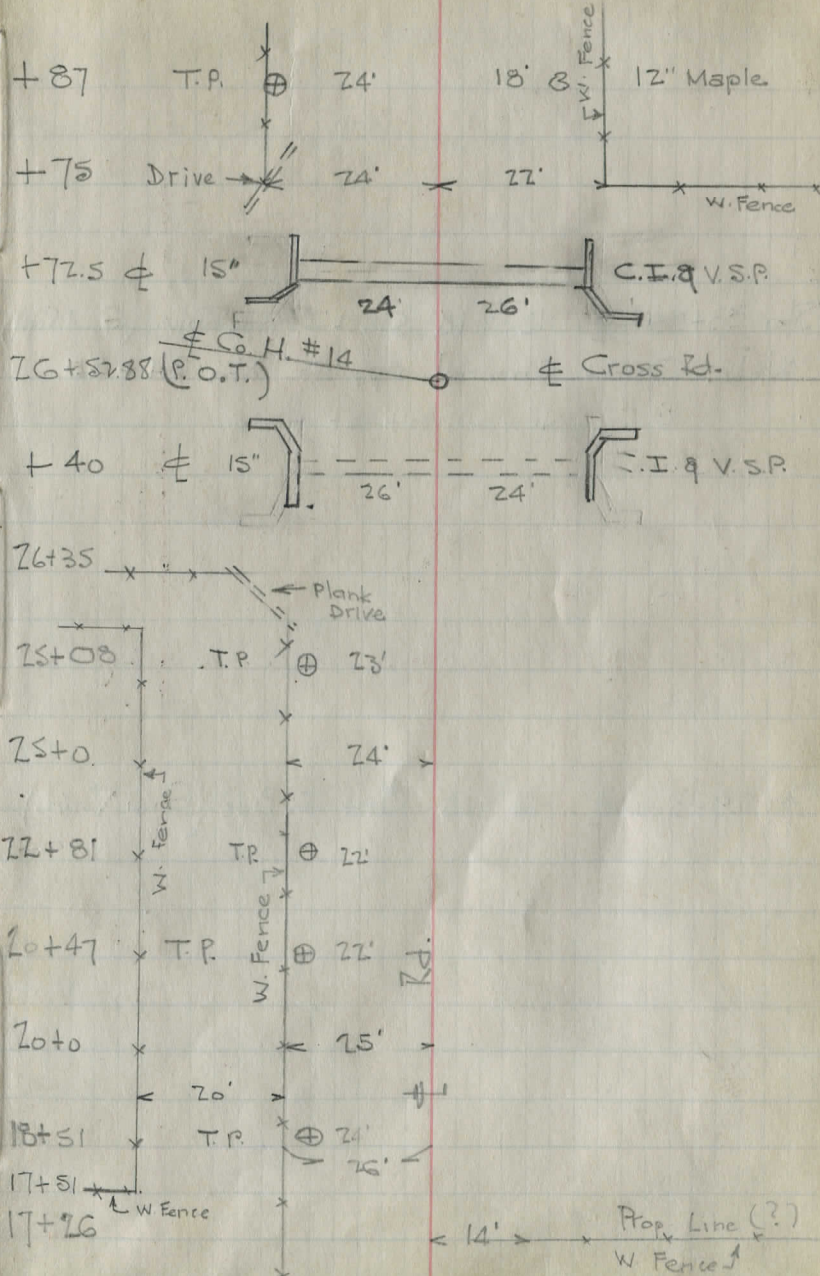 W. Fence
+87 T.P. 24' 18' 12" Maple
+75 Drive 24' 22'
W. Fence
+72.5 ℄ 15" C.I. & V.S.P.
24 26'
℄ Co. H. #14
26+52.88 (P.O.T.) ℄ Cross Rd.
+40 ℄ 15" C.I. & V.S.P.
26' 24'
26+35
Plank
Drive
25+08 T.P. 23'
25+0 24'
W. Fence
22+81 T.P. 22'
W. Fence
20+47 T.P. 22'
℄ Rd.
20+0 25'
20'
18+51 T.P. 24'
26'
17+51
W Fence
17+26 14' Prop. Line (?)
W Fence